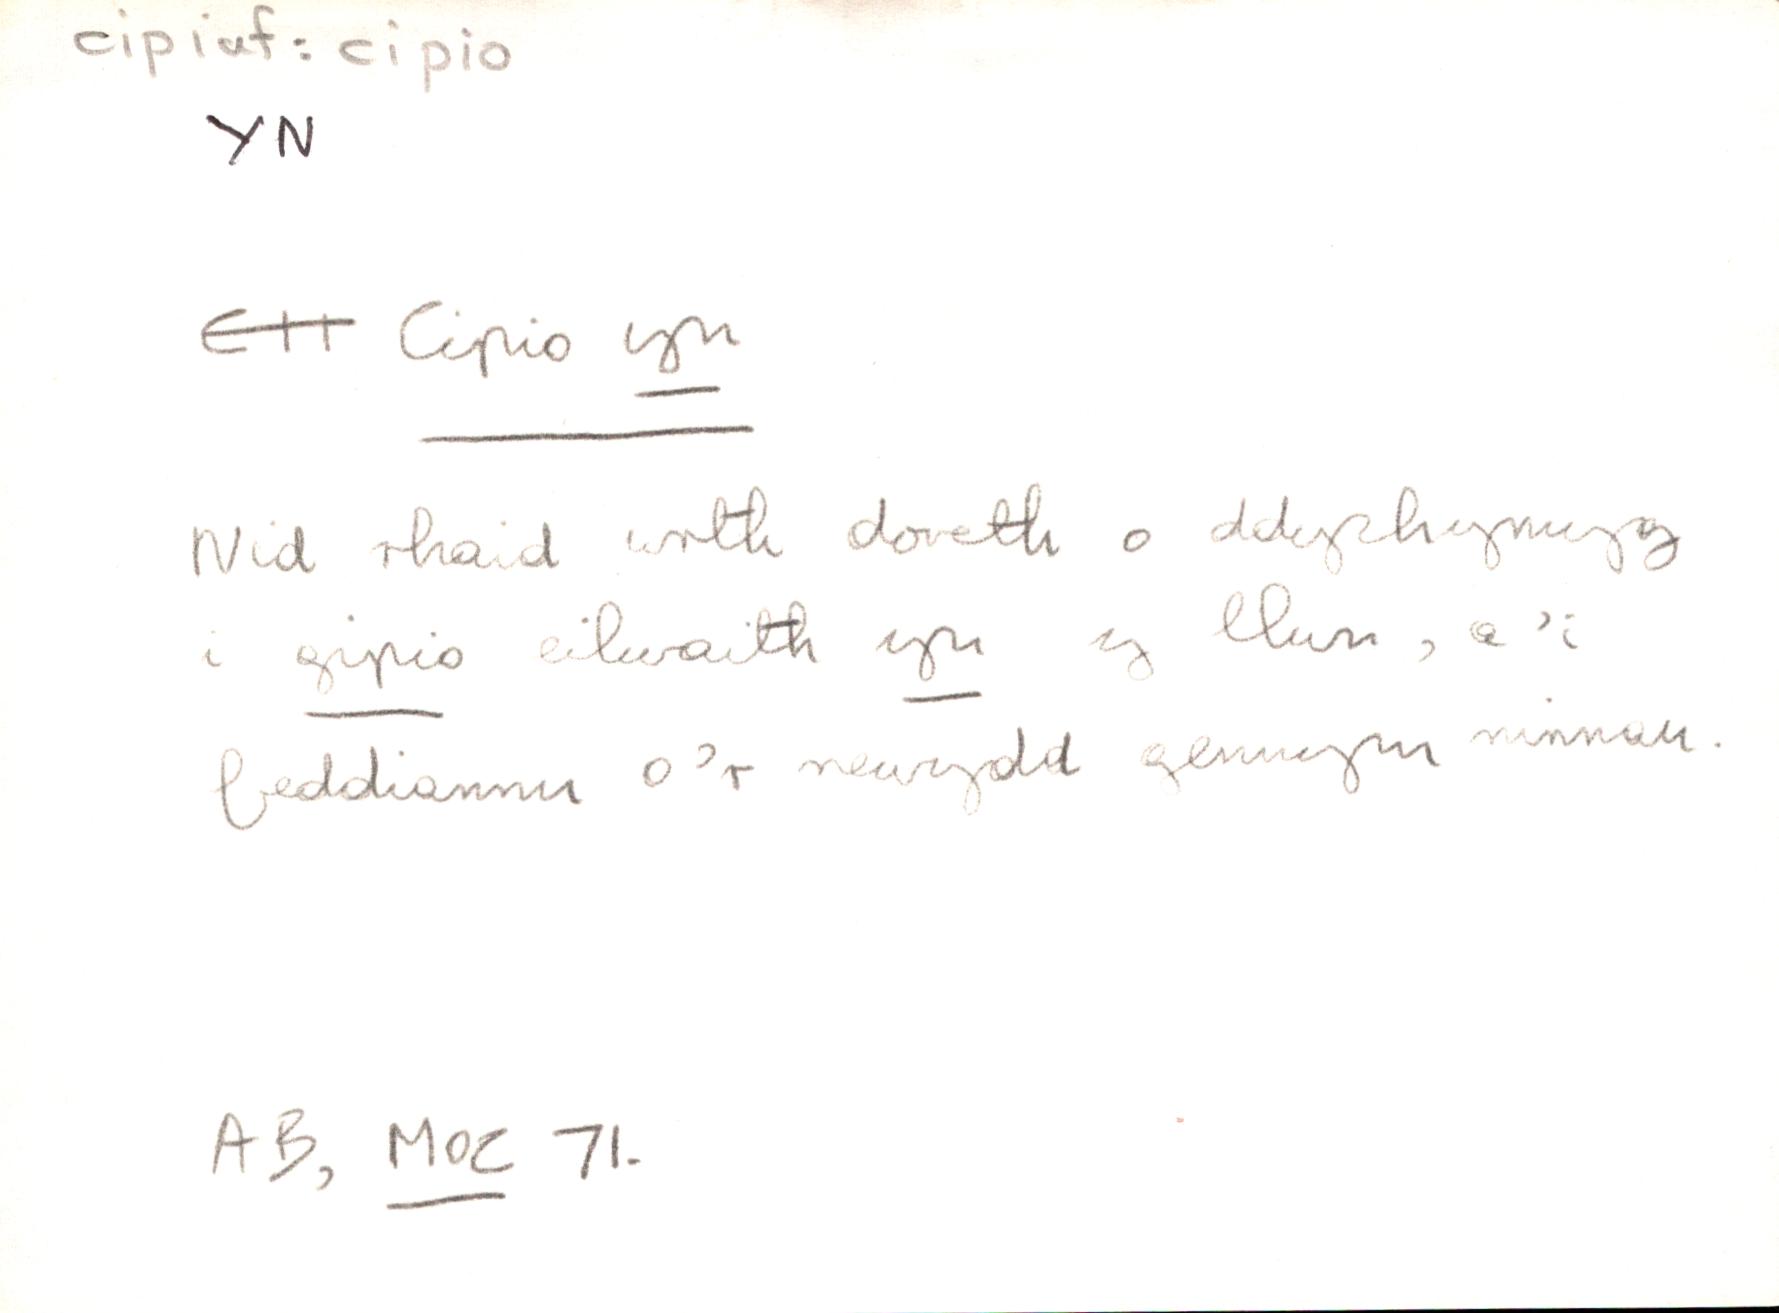 cipiaf: cipio
YN
Cipio yn
Nid rhaid wrth doreth o ddychymyg
i gipio eilwaith yn y llun, a'i
feddiannu o'r newydd gennym ninnau.
AB, MOC 71.